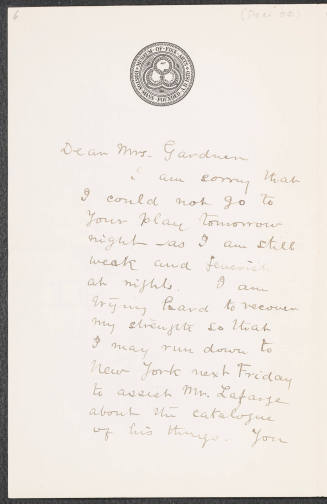 6
(Dec '02)
MUSEUM OF FINE ARTS
Dear Mrs. Gardner
I am sorry that
I could not go to
your play tomorrow
night – as I am still
weak and feverish
at nights. I am
trying hard to recover
my strength so that
I may run down to
New York next Friday
to assist Mr. Lafarge
about the catalogue
of his things. You